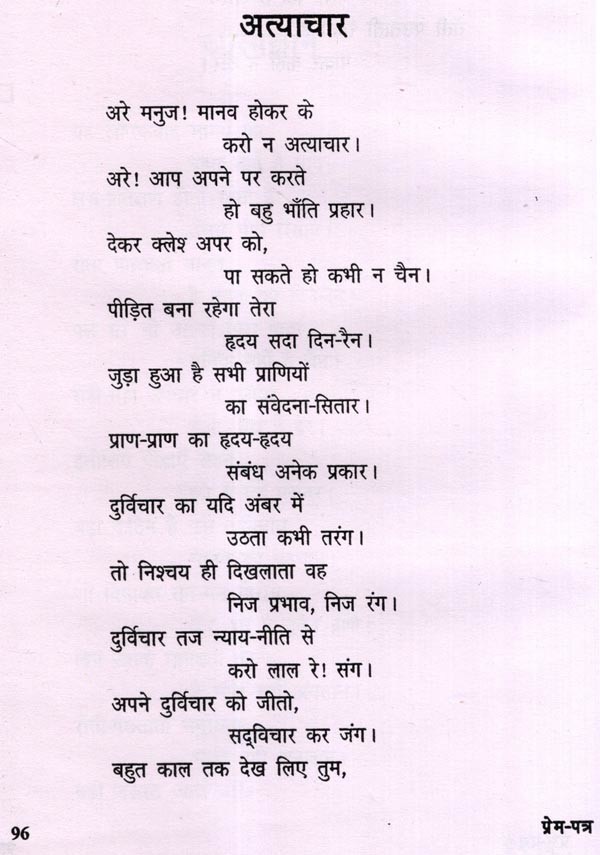 अत्याचार
अरे मनुज! मानव होकर के
करो न अत्याचार।
अरे! आप अपने पर करते
हो बहु भाँति प्रहार।
देकर क्लेश अपर को,
पा सकते हो कभी न चैन।
पीड़ित बना रहेगा तेरा
हृदय सदा दिन-रैन।
जुड़ा हुआ है सभी प्राणियों
का संवेदना-सितार।
प्राण-प्राण का हृदय-हृदय
संबंध अनेक प्रकार।
दुर्विचार का यदि अंबर में
उठता कभी तरंग।
तो निश्चय ही दिखलाता वह
निज प्रभाव, निज रंग।
दुर्विचार तज न्याय-नीति से
करो लाल रे! संग।
अपने दुर्विचार को जीतो,
सद्‌विचार कर जंग।
बहुत काल तक देख लिए तुम,
96
प्रेम-पत्र